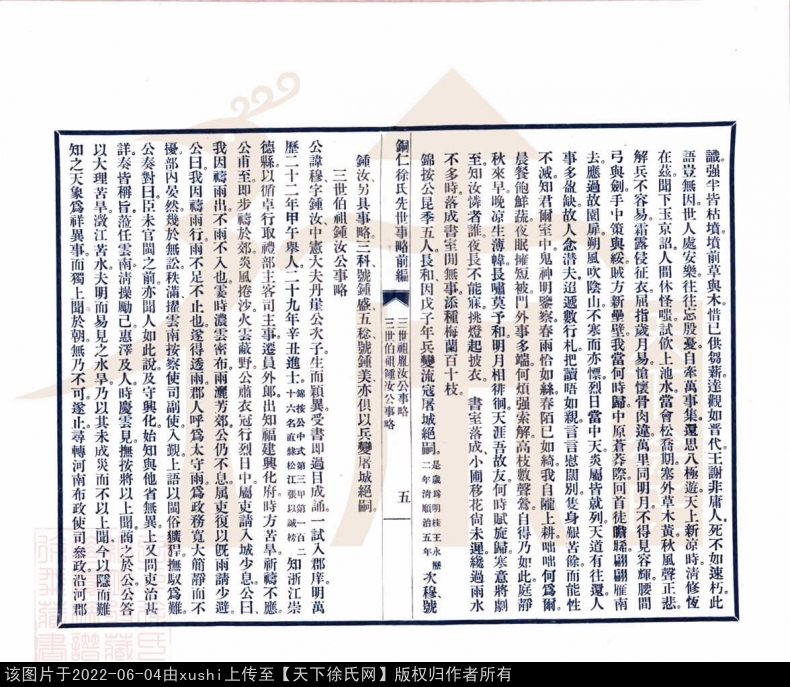 識强半皆枯墳墳前草與木惜已供芻薪達觀如晋代王謝非庸人死不如速朽此
語豈無因世人處安樂往往忘殷憂自牽萬事集還思八極遊天上新涼時清修恆
在茲聞下玉京詔人間休怪嗤試飲上池水當會松喬期塞外草木黃秋風聲正悲
解兵不容易霜露侵征衣屈指歲月易愴懷骨肉違萬里同明月不得見容輝腰間
弓與劍手中策與綏賊方新壘壁我當何時歸中原蒼莽際回首徒瞻睎翩翩雁南
去應過故園扉朔風吹陰山不寒而亦慄烈日當中天炎屬皆就列天道有往還人
事多盈缺故人念潜夫迢遞數行札把讀唔如親言言慰闊別隻身艱苦餘而能性
不滅知君爾室中鬼神明鑒察春雨恰如絲春陌已如綺我自隴上耕咄咄何爲爾
晨餐飽鮮蔬夜眠擁短被門外事多端何煩强索解高枝數聲鶯自得乃如此庭靜
秋來早晚凉生薄幃長嘯莫予和明月相徘徊天涯吾故友何時賦旋歸寒意將劇
至知汝憐者誰夜長不能寐挑燈起披衣　書室落成小圃移花尙未遲纔過兩水
不多時落成書室閒無事添種梅蘭百十枝
錦按公昆季五人長和因戊子年兵變流寇屠城絕嗣是歲爲明桂王永歷二年清順治五年次穆號
銅仁徐氏先世事略前編　三世祖雁汝公事略　三世伯祖鍾汝公事略　五
鍾汝另具事略三科號鍾盛五稔號鍾美亦俱以兵變屠城絕嗣
三世伯祖鍾汝公事略
公諱穆字鍾汝中憲大夫丹崖公次子生而穎異受書即過目成誦一試入郡庠明萬
歷二十二年甲午舉人二十九年辛丑進士錦按公中式第三甲第一百二十六名直隸松江張以誠榜知浙江崇
德縣以循卓行取禮部主客司主事遷員外郎出知福建興化府時方苦旱祈禱不應
公甫至即步禱於郊炎風捲沙火雲蔽野公肅衣冠行烈日中屬吏請入城少息公曰
我因禱雨出不雨不入也霎時濃雲密布雨灑芳郊公仍不息屬吏復以旣雨請少避
公曰我因禱雨行雨不足不止也遂得透雨郡人呼爲太守雨爲政務寬大簡靜而不
擾部內晏然幾於無訟秩滿擢雲南按察使司副使入覲上語以閩俗獷猂撫馭爲難
公奏對曰臣未官閩之前亦聞人如此說及守興化始知與他省無異上又問吏治甚
詳奏皆稱旨蒞任雲南清操勵己惠澤及人時慶雲見撫按將以上聞商之於公公答
以大理苦旱澂江苦水夫明而易見之水旱乃以其未成災而不以上聞今以隱而難
知之天象爲祥異事而獨上聞於朝無乃不可遂止尋轉河南布政使司叅政沿河郡
该图片于2022-06-04由xushi上传至【天下徐氏网】版权归作者所有